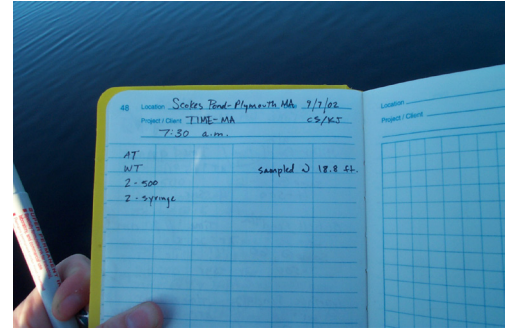 48 Location Scokes Pond - Plymouth MA 9/7/02
Project / Client TIME-MA CS/KJ
7:30 a.m.
AT
WT sampled @ 18.8 ft.
2 - 500
2 - syringe
Location
Project / Client